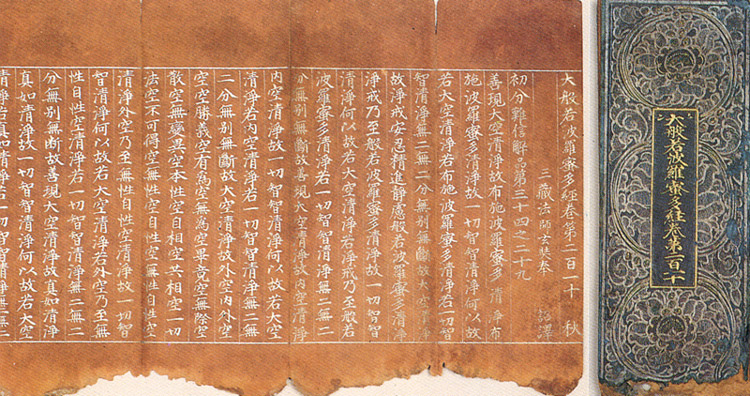 大般若波羅蜜多經卷第二百一十 秋
三藏法師玄奘奉 詔譯
初分難信解品第三十四之二十九
善現大空清淨故布施波羅蜜多清淨布
施波羅蜜多清淨故一切智智清淨何以故
若大空清淨若布施波羅蜜多清淨若一切智
智清淨無二無二分無別無斷故大空清淨
故淨戒安忍精進靜慮般若波羅蜜多清淨
淨戒乃至般若波羅蜜多清淨故一切智智
清淨何以故若大空清淨若淨戒乃至般若
波羅蜜多清淨若一切智智清淨無二無二
分無別無斷故善現大空清淨故內空清淨
內空清淨故一切智智清淨何以故若大空
清淨若內空清淨若一切智智清淨無二無
二分無別無斷故大空清淨故外空內外空
空空勝義空有為空無為空畢竟空無際空
散空無變異空本性空自相空共相空一切
法空不可得空無性空自性空無性自性空
清淨外空乃至無性自性空清淨故一切智
智清淨何以故若大空清淨若外空乃至無
性自性空清淨若一切智智清淨無二無二
分無別無斷故善現大空清淨故真如清淨
真如清淨故一切智智清淨何以故若大空
清淨若真如清淨若一切智智清淨無二無二
大般若波羅蜜多經卷第二百一十